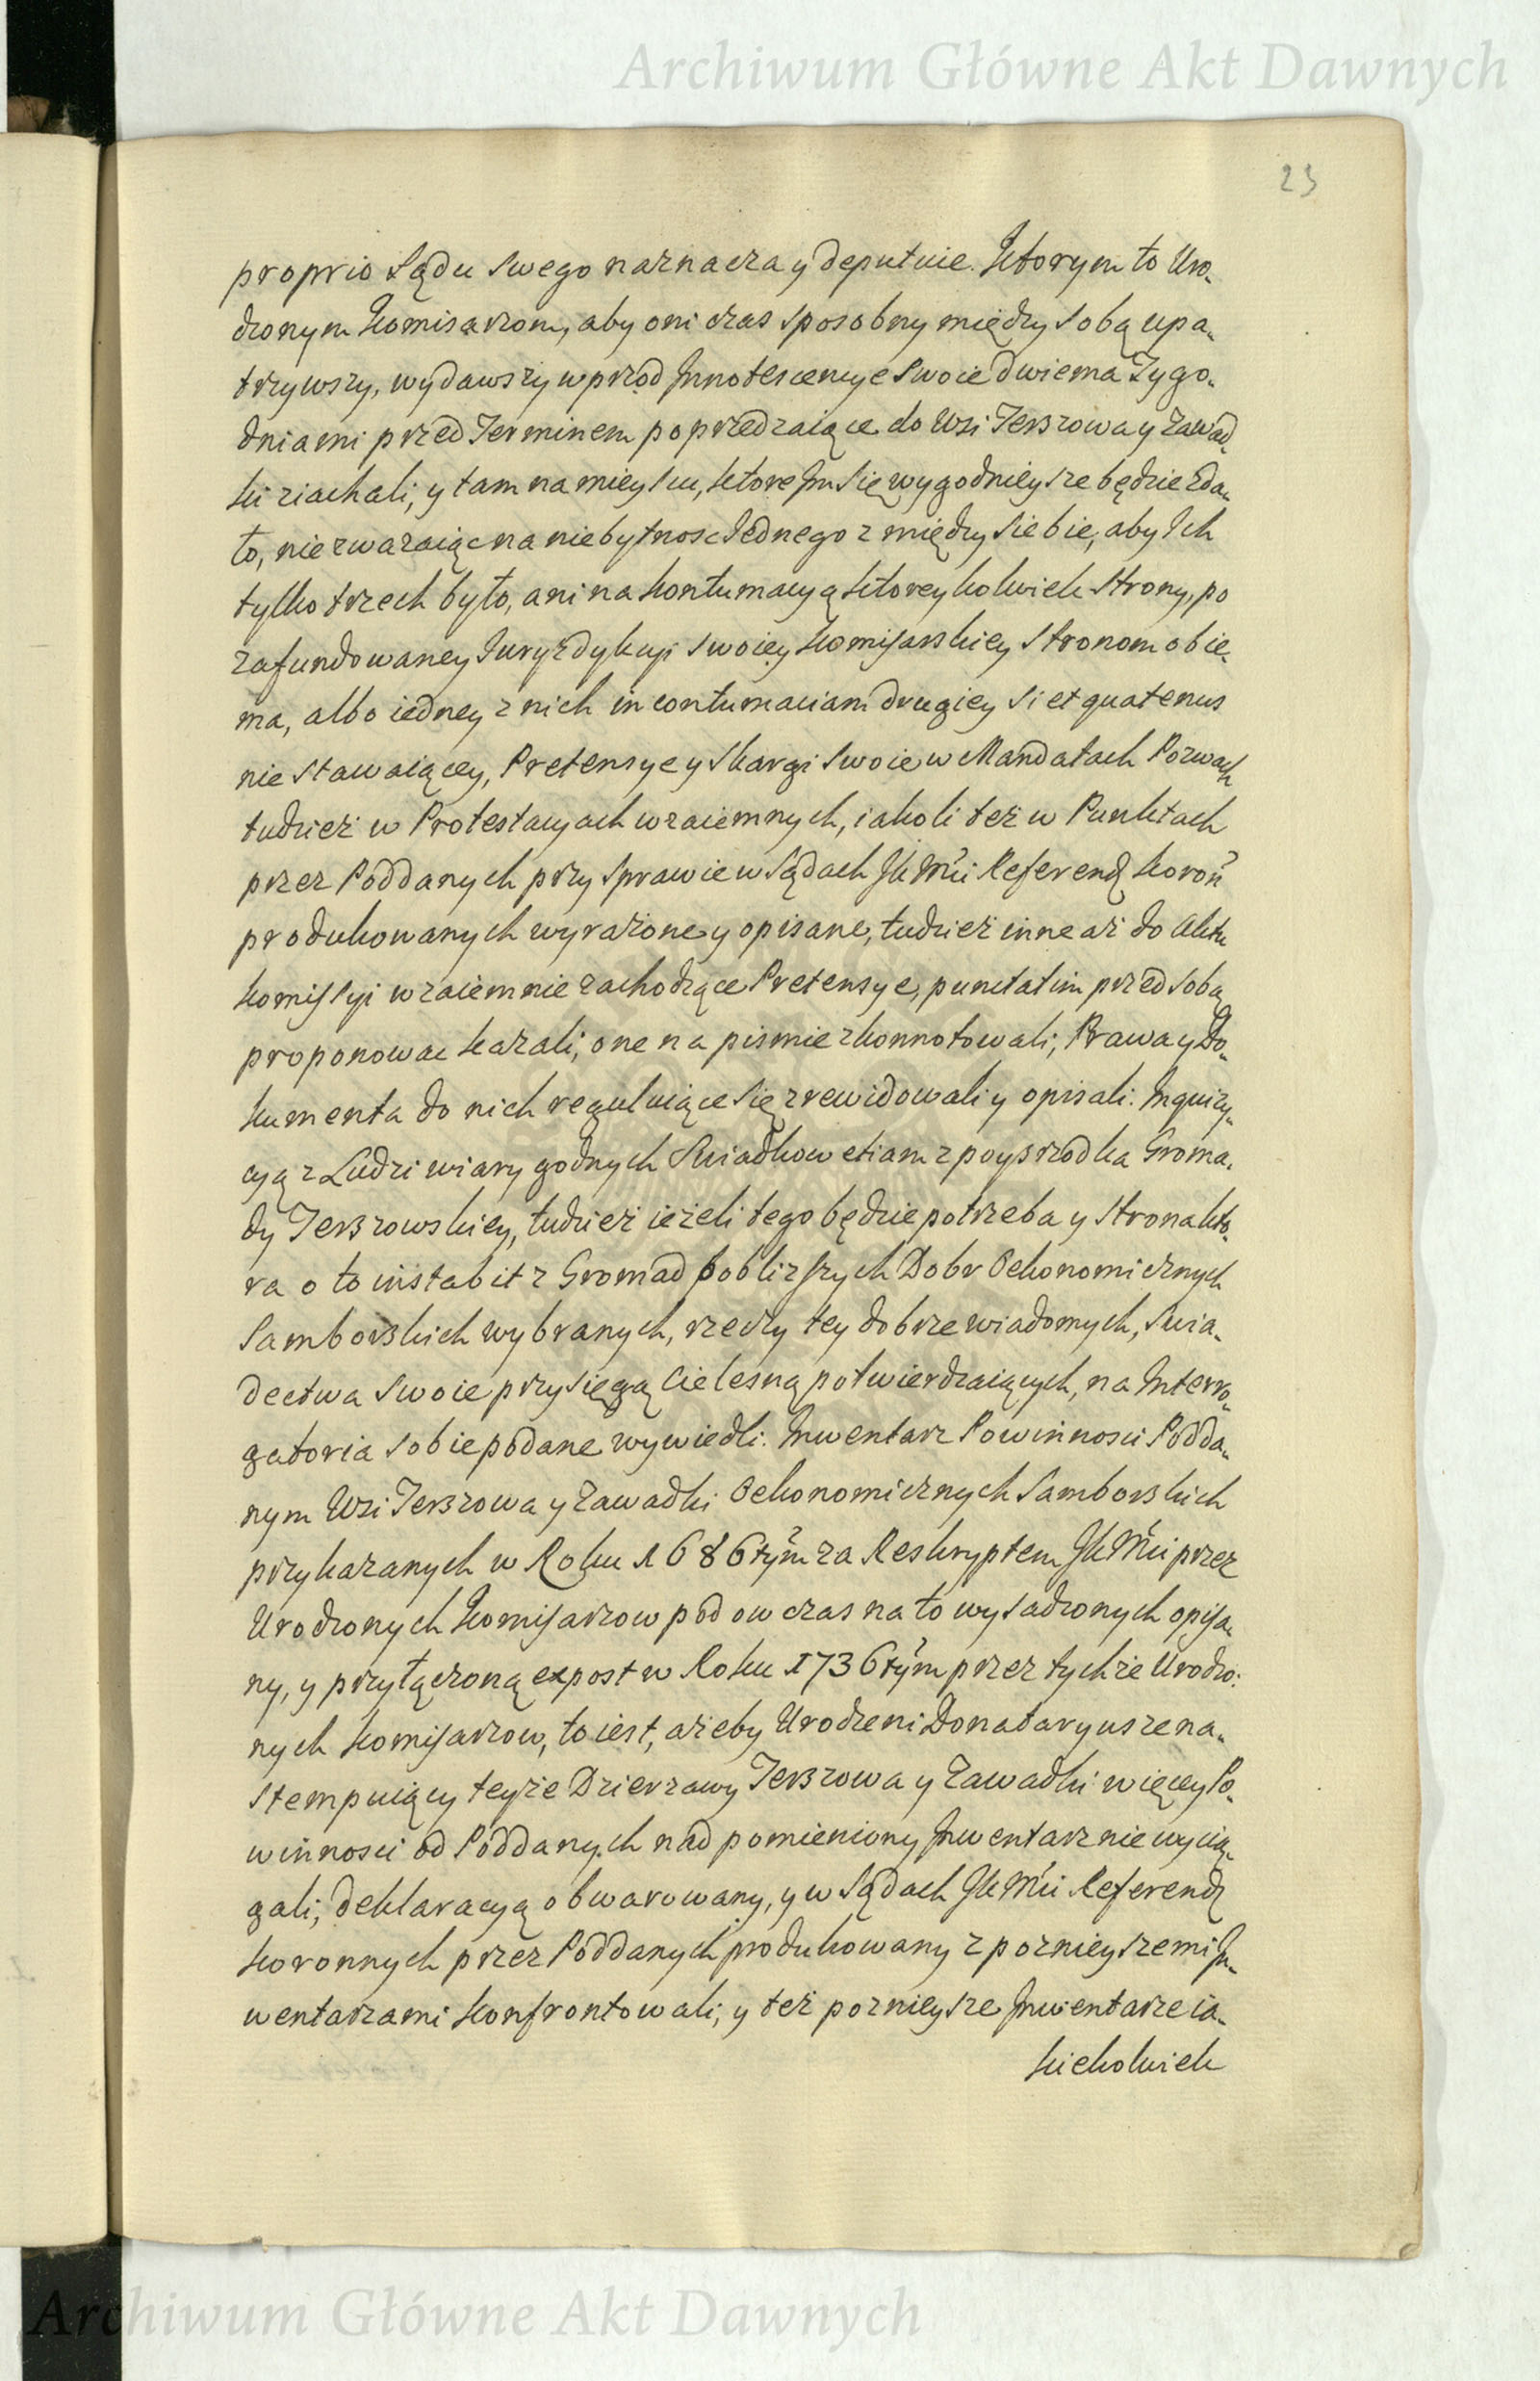 Archiwum Główne Akt Dawnych
23
proprio Sądu Swego naznacza y deputuie. Ktorym to Uro-
dzonym Komisarzom, aby oni czas sposobny między sobą upa-
trzywszy, wydawszy wprzod Innotescencye Swoie dwiema Tygo-
dniami przed Terminem poprzedzaiące do Wsi Terszowa y Zawad-
ki ziachali, y tam na mieyscu, ktore Im się wygodnieysze będzie zda-
ło, nie zwazaiąc na niebytnosc Jednego z między siebie, aby Ich
tylko trzech było, ani na kontumacyą ktoreykolwiek Strony, po
zafundowaney Juryzdykcyi swoiey Komisarskiey Stronom obie-
ma, albo iedney z nich in contumaciam drugiey si et quatenus
nie stawaiącey, Pretensye y Skargi swoie w Mandatach Pozwach
tudziesz w Protestacyach wzaiemnych, iakoli też w Punktach
przez Poddanych przy Sprawie w Sądach JK Mći Referend Koroń
produkowanych wyrażone y opisane, tudzież inne aż do Aktu
Komissyi wzaiemnie zachodzące Pretensye, punctatim przed sobą
proponowac kazali, one na pismie zkonnotowali, Prawa y Do-
kumenta do nich reguluiące się zrewidowali y opisali. Inquizy-
cyą z Ludzi wiary godnych Swiadkow etiam z poysrzodka Groma-
dy Terszowskiey, tudzież ieżeli tego będzie potrzeba y Strona kto-
ra o to instabit z Gromad pobliższych Dobr Oekonomicznych
Samborskich wybranych, rzeczy tey dobrze wiadomych, swia-
dectwa swoie przysięgą cielesną potwierdzaiących, na Interro-
gatoria sobie podane wywiedli. Inwentarz Powinnosci Podda-
nym Wsi Terszowa y Zawadki Oekonomicznych Samborskich
przykazanych w Roku 1686tym za Reskryptem JK Mći przez
Urodzonych Komisarzow pod ow czas na to wysadzonych opisa-
ny, y przyłączoną ex post w Roku 1736tym przez tychże Urodzo-
nych Komisarzow, to iest, ażeby Urodzeni Donataryusze na-
stempuiący teyże Dzierzawy Terszowa y Zawadki więcey Po-
winnosci od Poddanych nad pomieniony Inwentarz nie wycią-
gali, deklaracyą obwarowany, y w Sądach JK Mći Referend
Koronnych przez Poddanych produkowany z poznieyszemi In-
wentarzami konfrontowali, y też poznieysze Inwentarze ia-
kiekolwiek
Archiwum Główne Akt Dawnych